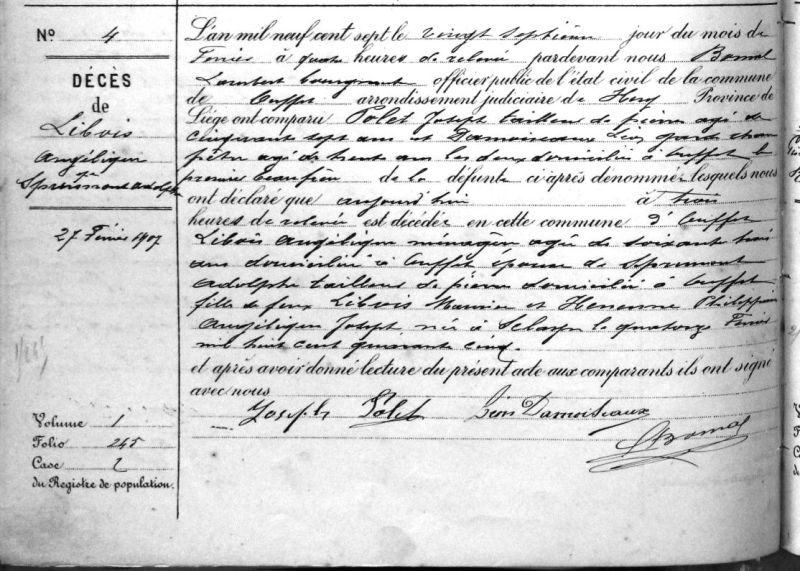 N° 4
DÉCÈS
de
Libois
Angélique
ép
Sprimont Adolphe
27 Février 1907
Volume 1
Folio 245
Case 2
du Registre de population.
L'an mil neuf cent sept le vingt septième jour du mois de
Février à quatre heures de relevée pardevant nous Bomal
Lambert bourgmestre officier public de l'état civil de la commune
de Ouffet arrondissement judiciaire de Huy Province de
Liége ont comparu Polet Joseph tailleur de pierres agé de
cinquante sept ans et Damoiseaux Léon garde cham
pêtre agé de trente ans les deux domiciliés à Ouffet le
premier beau frère de la défunte ci après dénommée lesquels nous
ont déclaré que aujourd'hui à trois
heures de relevée est décédée en cette commune d'Ouffet
Libois Angélique ménagère agée de soixante trois
ans domiciliée à Ouffet épouse de Sprimont
Adolphe tailleur de pierres domicilié à Ouffet
fille de feux Libois Maurice et Henenne Philippine
Angélique Joseph, née à Sclayn le quatorze Février
mil huit cent quarante cinq.
et après avoir donné lecture du présent acte aux comparants ils ont signé
avec nous
Joseph Polet Léon Damoiseaux
LBomal